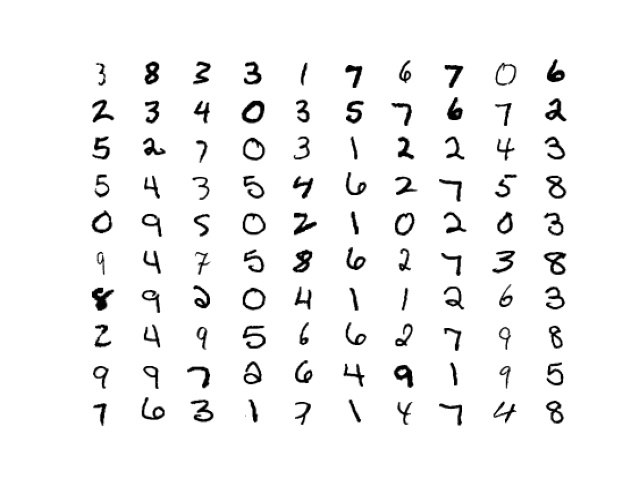 3 8 3 3 1 7 6 7 0 6
2 3 4 0 3 5 7 6 7 2
5 2 7 0 3 1 2 2 4 3
5 4 3 5 4 6 2 7 5 8
0 9 5 0 2 1 0 2 0 3
9 4 7 5 8 6 2 7 3 8
8 9 2 0 4 1 1 2 6 3
2 4 9 5 6 6 2 7 9 8
9 9 7 2 6 4 9 1 9 5
7 6 3 1 7 1 4 7 4 8